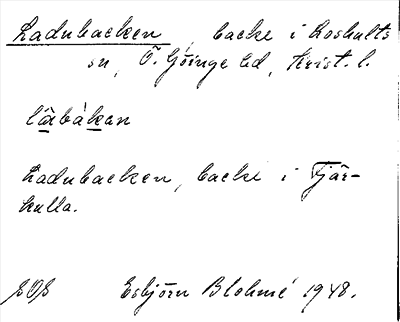 Ladubacken, backe i Loshults
sn, Ö. Göinge hd, Krist. l.
lâ̱bàḵan
Ladubacken, backe i Tjär-
kulla.
Esbjörn Blohmé 1948.